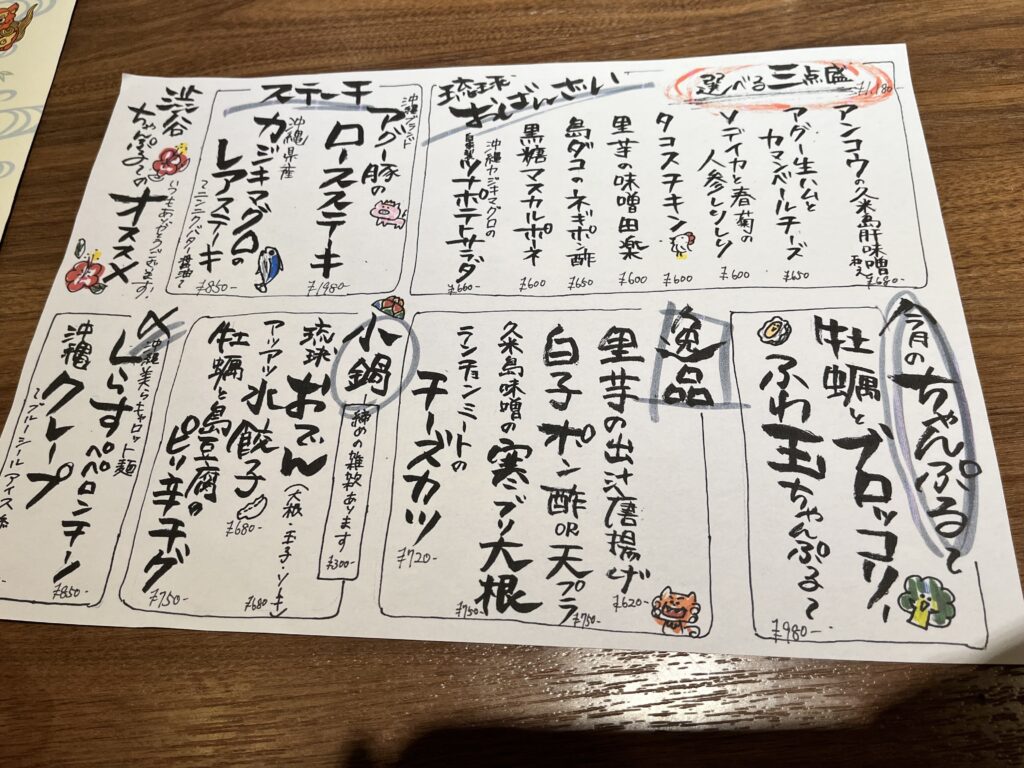 渋谷
ちゃんぷるのオススメ
いつもありがとうございます!
選べる三点盛
¥1,180-
琉球おばんざい
アンコウの久米島肝味噌和え
¥680-
アグー生ハムと
カマンベールチーズ
¥650
ソデイカと春菊の
人参しりしり
¥600
タコスチキン
¥600
里芋の味噌田楽
¥600
島ダコのネギポン酢
¥650
黒糖マスカルポーネ
¥600
沖縄カジキマグロの
自家製ツナポテトサラダ
¥660-
ステーキ
沖縄ブランド
アグー豚の
ロースステーキ
¥1980-
沖縄県産
カジキマグロの
レアステーキ
〜ニンニクバター醤油〜
¥850-
今月のちゃんぷる〜
牡蠣とブロッコリー
ふわ玉ちゃんぷる〜
¥980-
逸品
里芋の出汁唐揚げ
¥620-
白子ポン酢OR天プラ
¥750-
久米島味噌の寒ブリ大根
¥750-
ランチョンミートの
チーズカツ
¥720-
小鍋
締めの雑炊あります
¥300-
琉球おでん
(大根・玉子・ソーキ)
¥680-
アッアツ水餃子
¥680-
牡蠣と島豆腐の
ピリ辛チゲ
¥750-
〆
沖縄美らキャロット麺
しらすペペロンチーノ
¥850-
沖縄クレープ
〜ブルーシールアイス